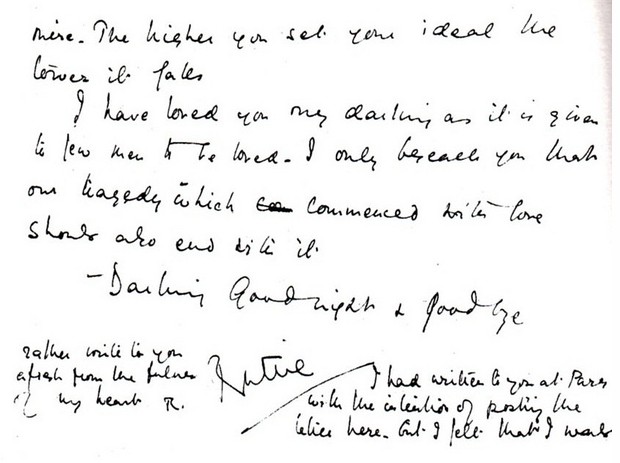 mire. The higher you set your ideal the
lower it falls
I have loved you my darling as it is given
to few men to be loved. I only beseech you that
our tragedy which commenced with love
should also end with it
- Darling Goodnight & Goodbye
Ruttie
I had written to you at Paris
with the intention of posting the
letter here. but I felt that I would
rather write to you
afresh from the fulness
of my heart R.